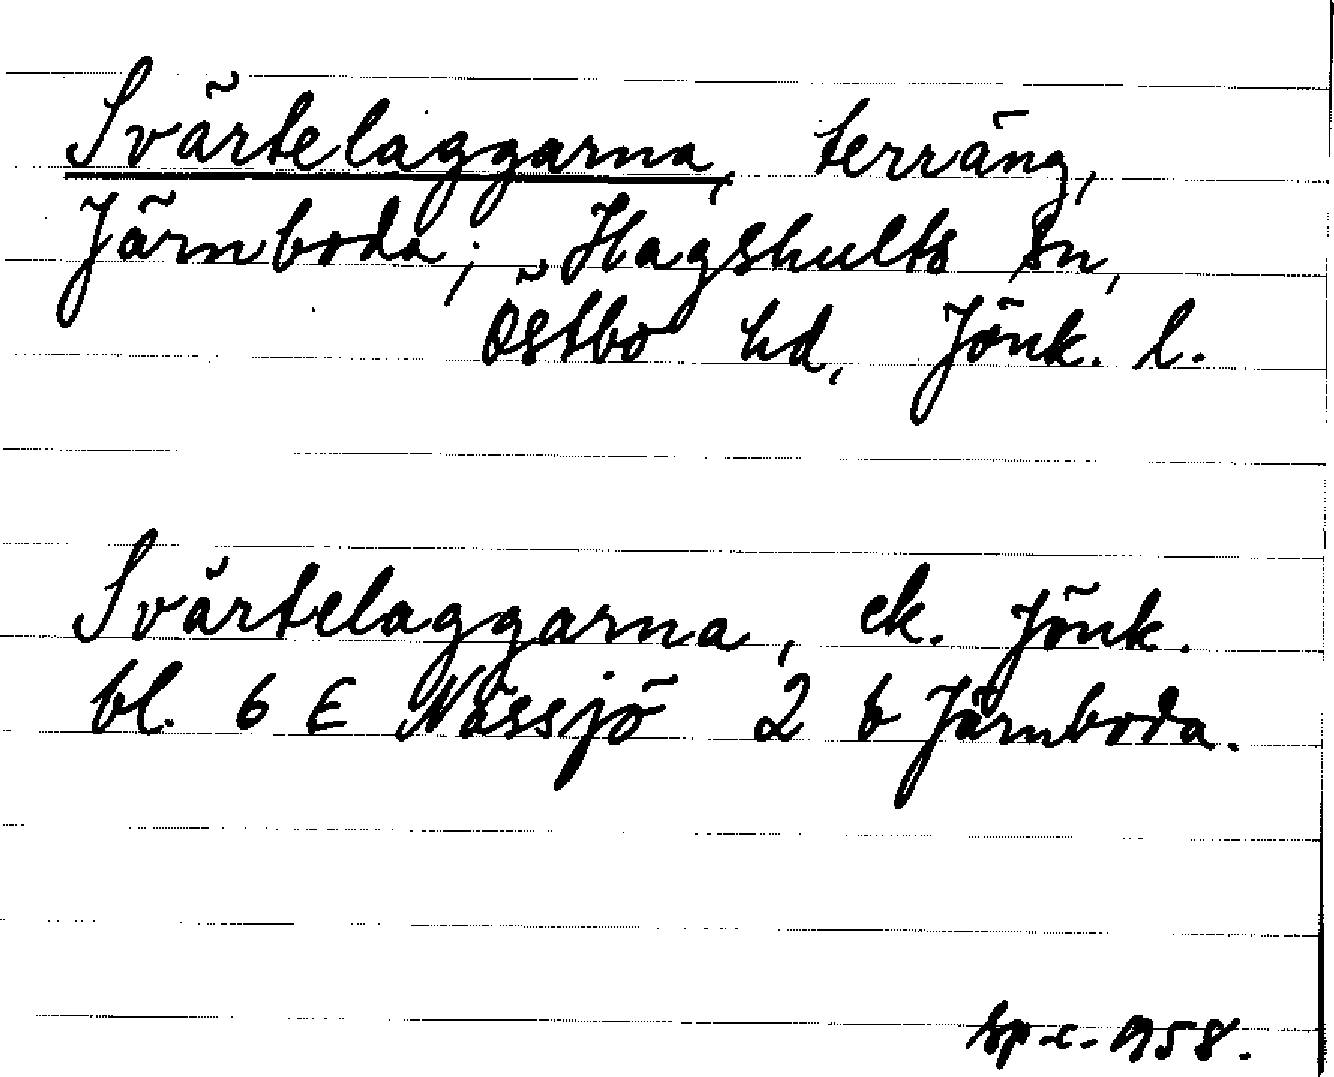 Svärtelaggarna, terräng,
Järnboda; Hagshults sn,
Östbo hd, Jönk. l.
Svärtelaggarna, ek. Jönk.
bl. 6 E Nässjö 2 b Järnboda.
1958.